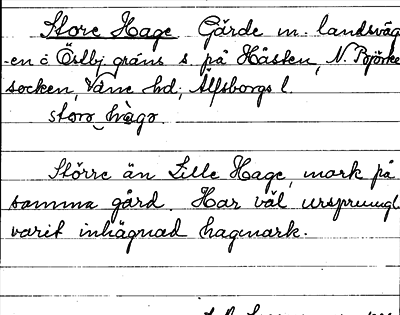 Store Hage Gärde m. landsväg
-en o Östbj. gräns s. på Håsten, N. Björke
socken, Väne hd; Älfsborgs l.
storo hago.
Större än Lille Hage, mark på
samma gård. Har väl ursprungl
varit inhägnad hagmark.